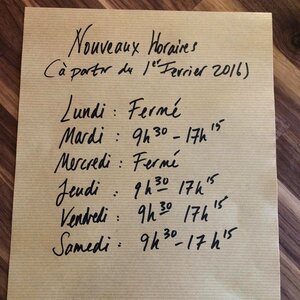 Nouveaux Horaires
(à partir du 1er Fevrier 2016)
Lundi : Fermé
Mardi : 9h30 - 17h15
Mercredi : Fermé
Jeudi : 9h30 17h15
Vendredi : 9h30 17h15
Samedi : 9h30 - 17h15